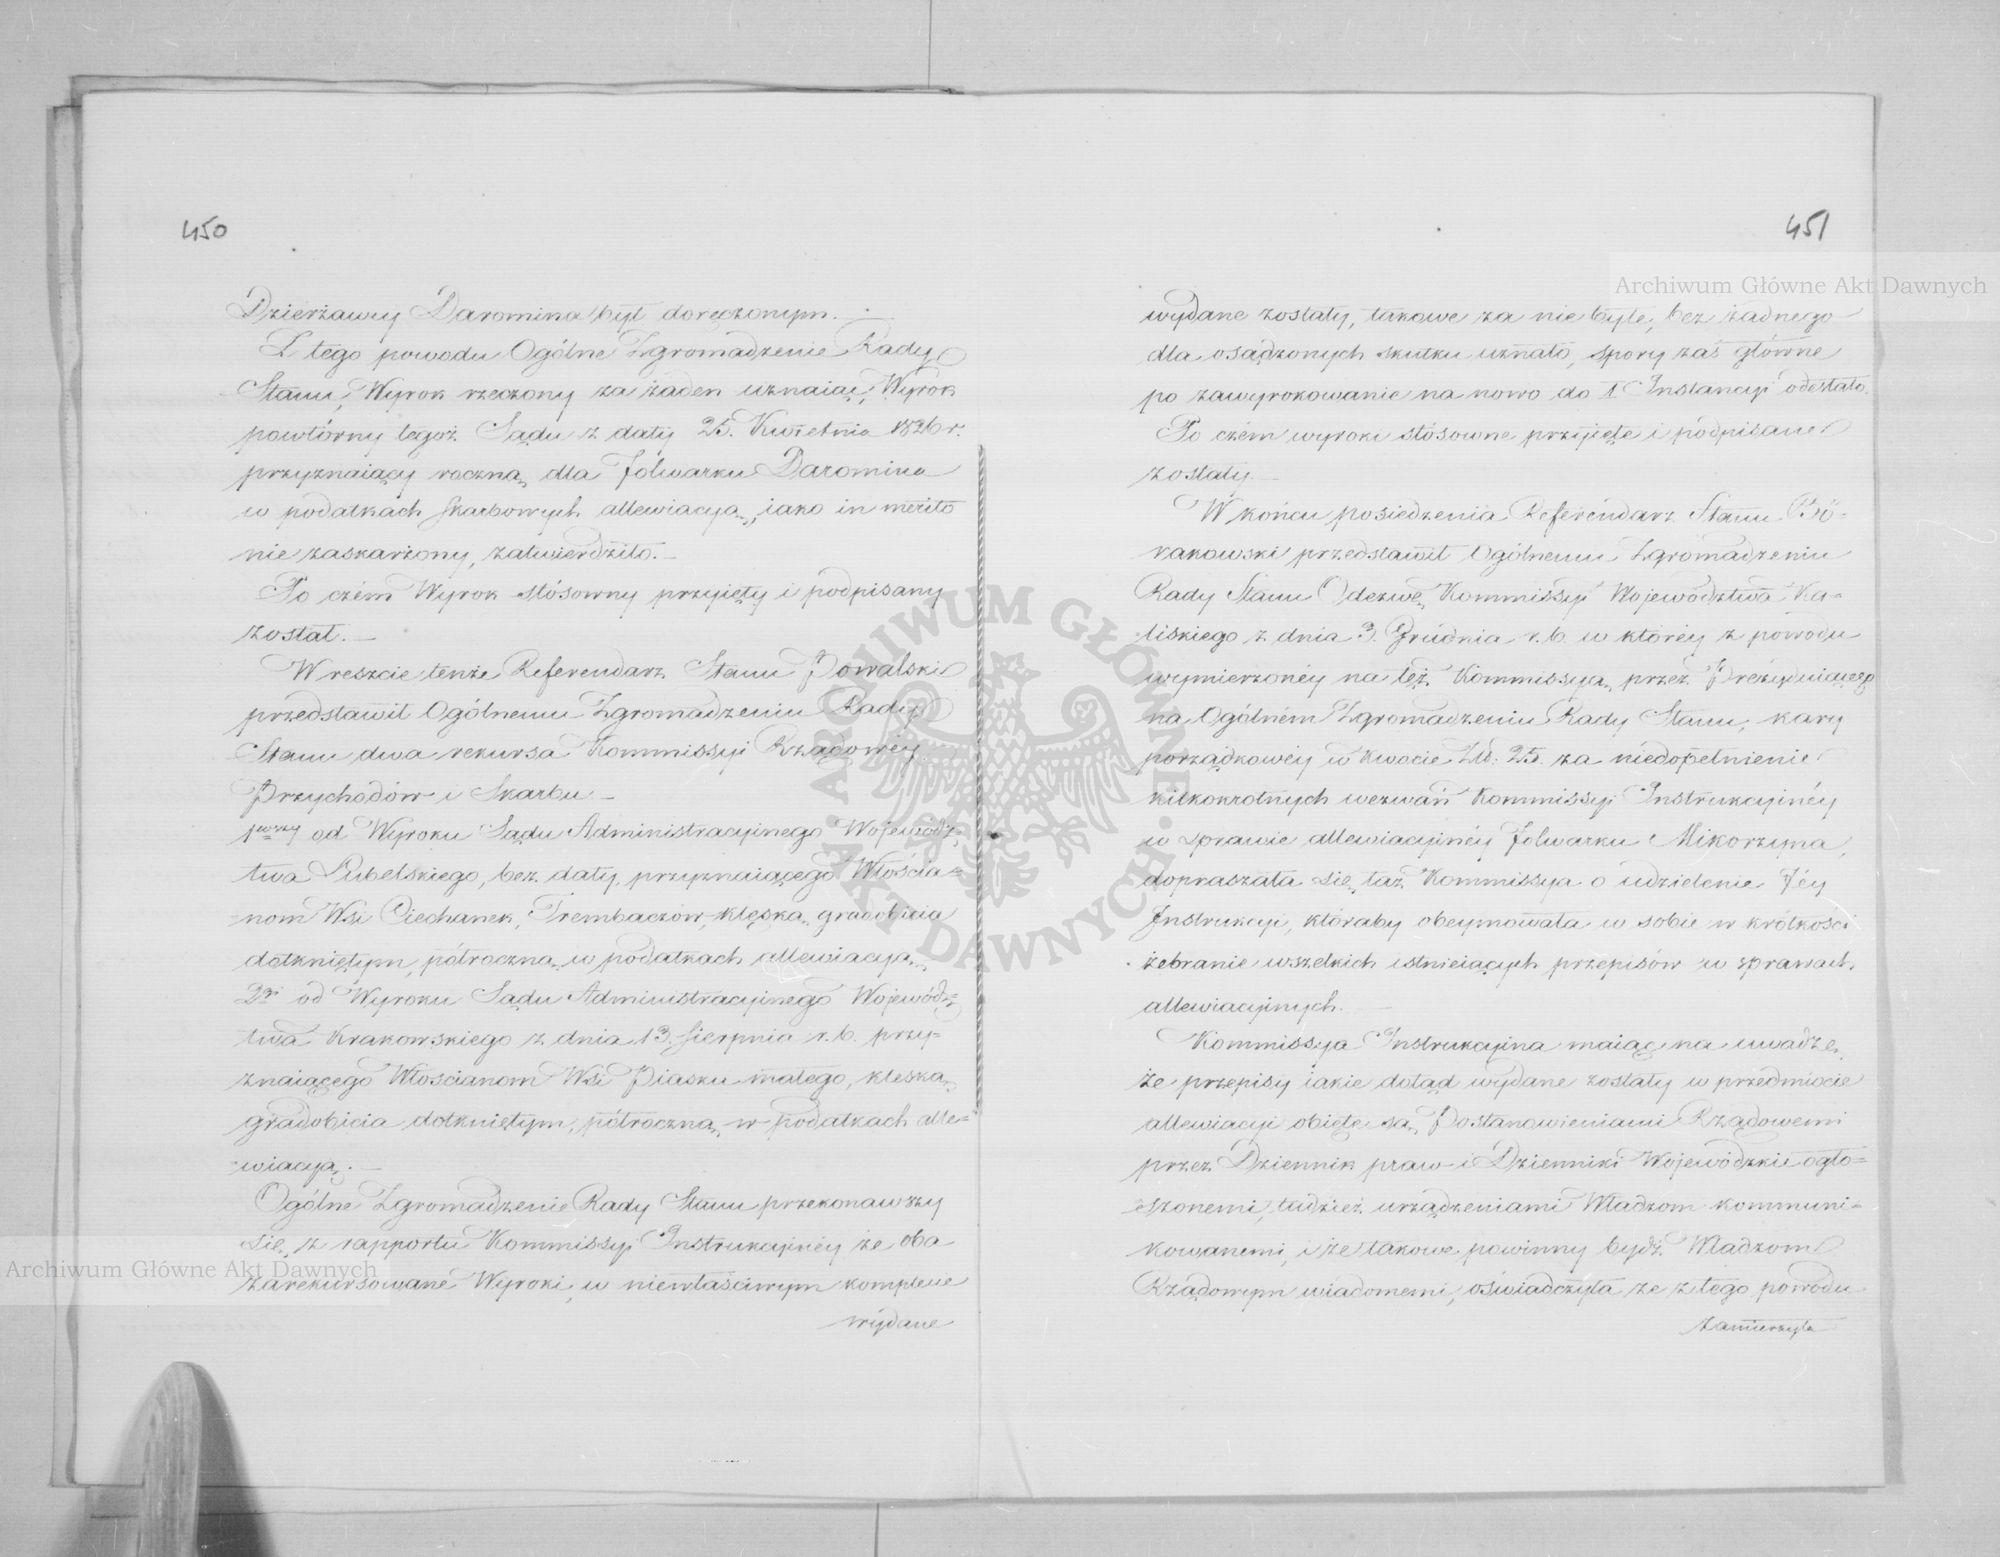 450
Dzierżawcy Daromina był doręczonym. —
Z tego powodu Ogólne Zgromadzenie Rady
Stanu, Wyrok rzeczony za żaden uznaiąc, Wyrok
powtórny tegoż Sądu z daty 25. Kwietnia 1826 r.
przyznaiący roczną dla folwarku Daromina
w podatkach skarbowych allewiacyą, iako in merito
nie zaskarżony, zatwierdziło. —
Po czém Wyrok stósowny przyięty i podpisany
został. —
W reszcie tenże Referendarz Stanu Kowalski
przedstawił Ogólnemu Zgromadzeniu Rady
Stanu dwa rekursa Kommissyi Rządowéy
Przychodów i Skarbu —
1wszy od Wyroku Sądu Administracyinego Wojewódz-
twa Lubelskiego, bez daty, przyznaiącego Włościa-
nom Wsi Ciechanek, Trembaczów, klęską gradobicia
dotkniętym, półroczną w podatkach allewiacyą,
2gi od Wyroku Sądu Administracyinego Wojewódz-
twa Krakowskiego z dnia 13. Sierpnia r. b. przy-
znaiącego Włościanom Wsi Piasku małego, klęską
gradobicia dotkniętym, półroczną w podatkach alle-
wiacyą. —
Ogólne Zgromadzenie Rady Stanu przekonawszy
się z rapportu Kommissyi Instrukcyinéy że oba
zarekursowane Wyroki, w niewłaściwym komplecie
wydane
451
wydane zostały, takowe za nie byłe, bez żadnego
dla osądzonych skutku uznało, spory zaś główne
po zawyrokowanie na nowo do I. Instancyi odesłało.
Po czém wyroki stósowne przyięte i podpisane
zostały. —
W końcu posiedzenia Referendarz Stanu
przedstawił Ogólnemu Zgromadzeniu
Rady Stanu Odezwę Kommissyi Województwa Ka-
liskiego z dnia 3. Grudnia r. b. w któréy z powodu
wymierzonéy na też Kommissyą, przez Prezyduiącego
na Ogólném Zgromadzeniu Rady Stanu, kary
porządkowéy w kwocie Złł. 25. za niedopełnienie
kilkokrotnych wezwań Kommissyi Instrukcyinéy
w sprawie allewiacyinéy folwarku Mikorzyna,
dopraszała się taż Kommissya o udzielenie Jéy
Instrukcyi, któraby obeymowała w sobie w krótkości
zebranie wszelkich istnieiących przepisów w sprawach
allewiacyinych. —
Kommissya Instrukcyina maiąc na uwadze,
że przepisy iakie dotąd wydane zostały w przedmiocie
allewiacyi obięte są Postanowieniami Rządowemi
przez Dziennik praw i Dzienniki Wojewódzkie ogło-
szonemi, tudzież urządzeniami Władzom kommuni-
kowanemi, i że takowe powinny bydź Władzom
Rządowym wiadomemi, oświadczyła że z tego powodu
zamierzyła
Archiwum Główne Akt Dawnych
Archiwum Główne Akt Dawnych
· ARCHIWUM GŁÓWNE · AKT DAWNYCH ·